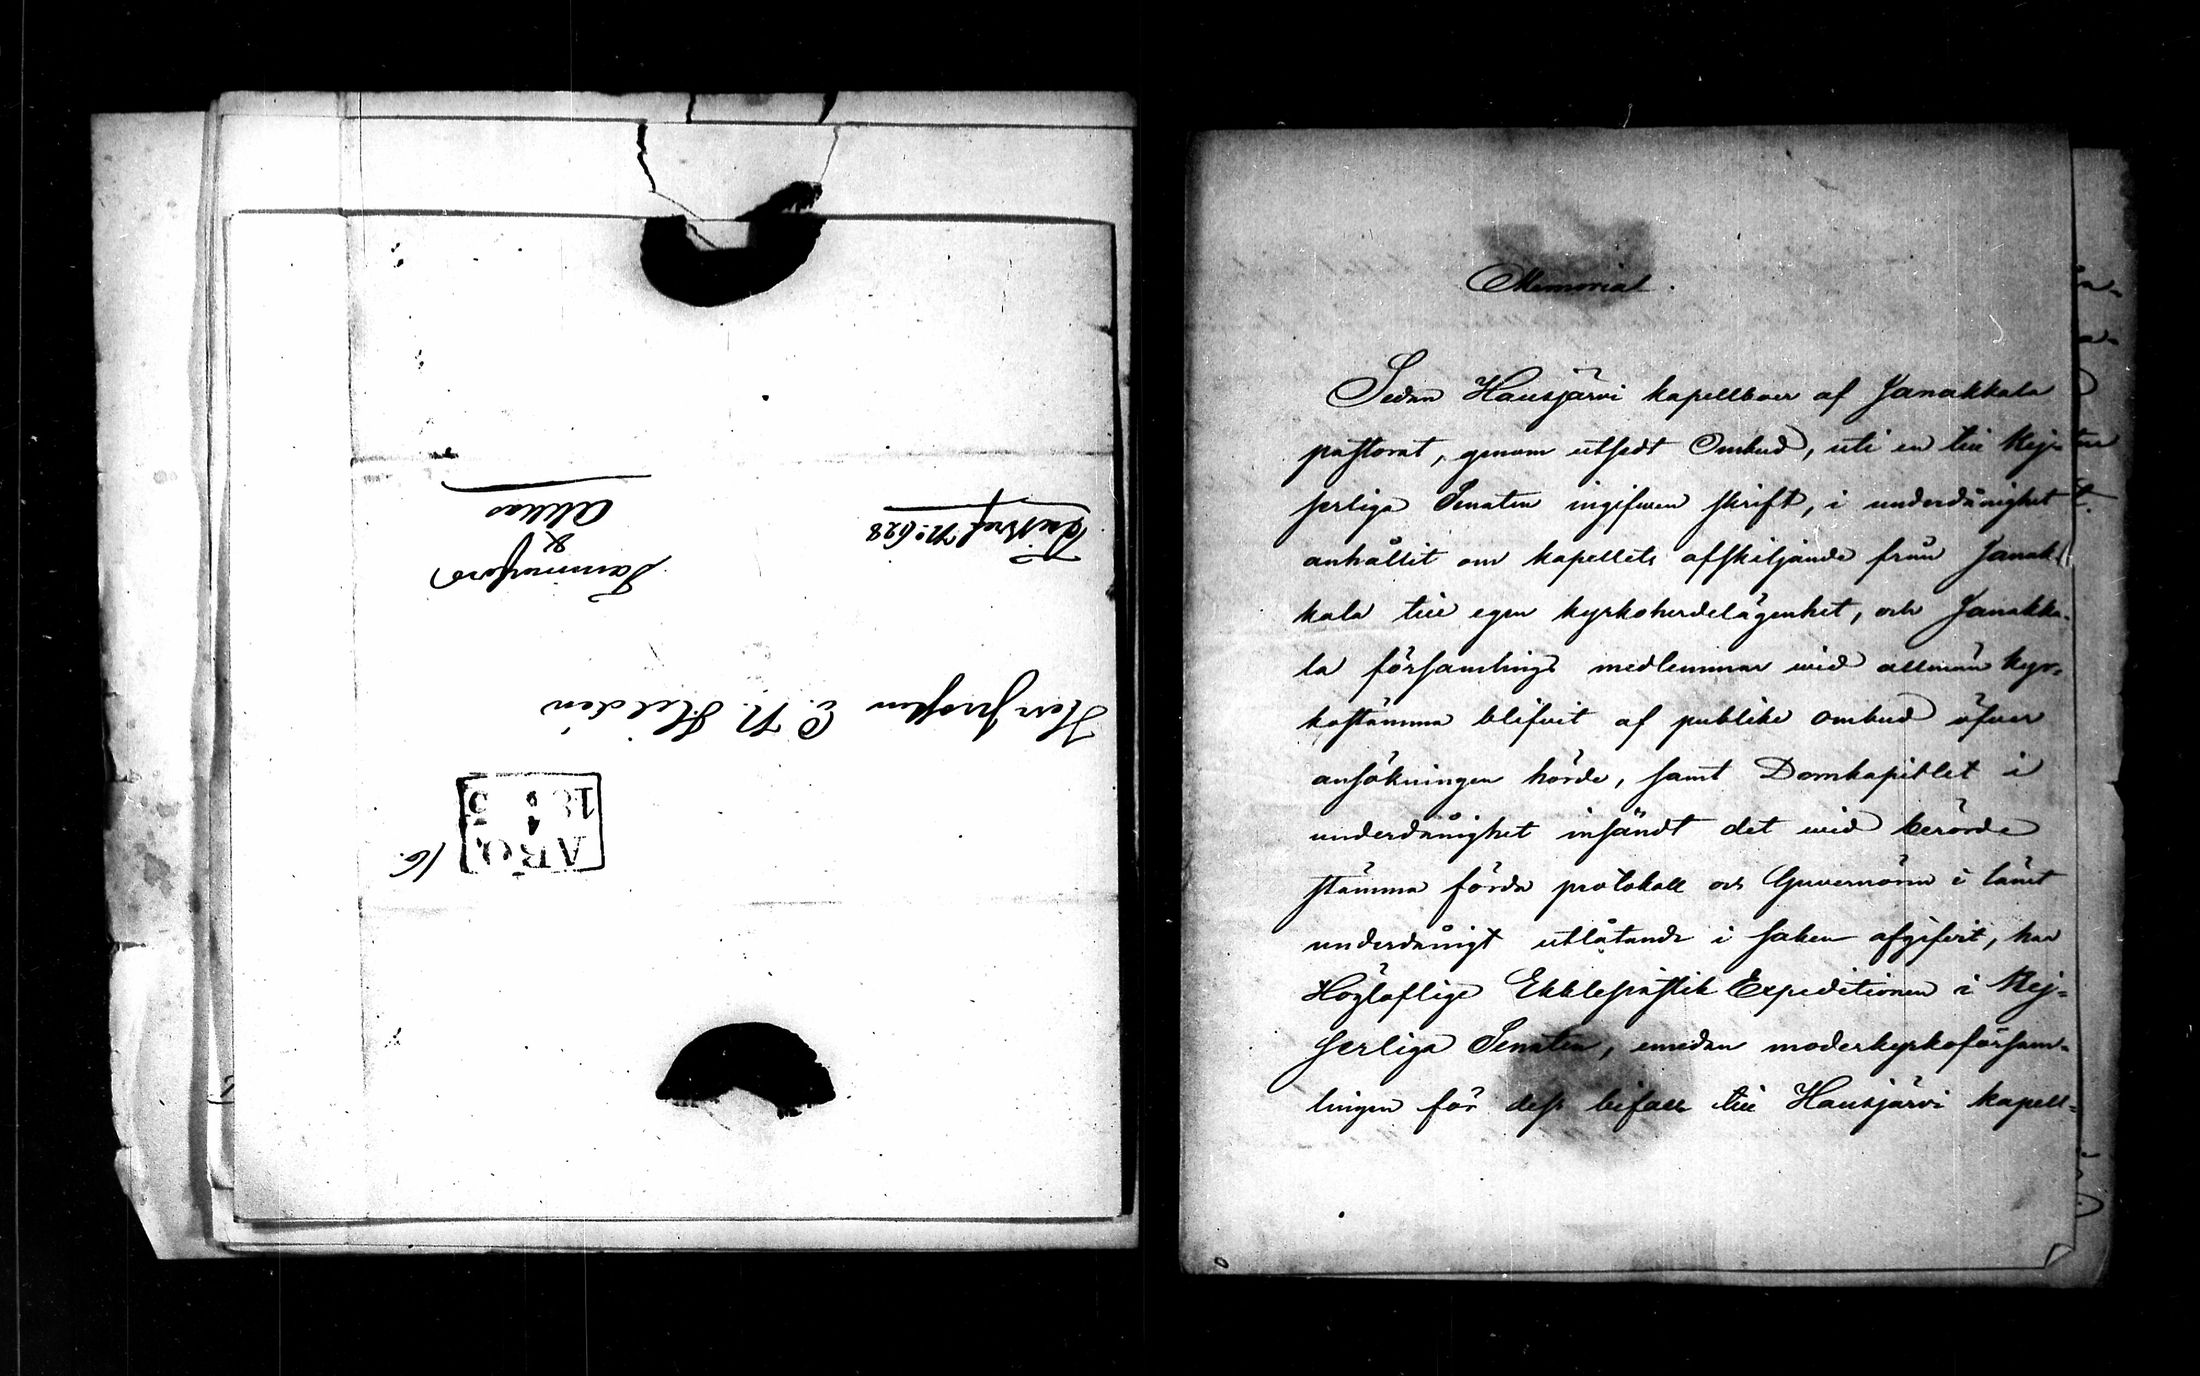 Tjenstbref No 628
Tammerfors
&
Akkas
Herr Prosten C. N. Heldén
ÅBO
1845
4
16.
Memorial.
Sedan Hausjärvi kapellboer af Janakkala
pastorat, genom utsedt Ombud, uti en till Kej-
serliga Senaten ingifwen skrift, i underdånighet
anhållit om kapellets afskiljande från Janak-
kala till egen kyrkoherdelägenhet, och Janakka-
la församlings medlemmar wid allmän kyr-
kostämma blifvit af publike ombud öfver
ansökningen hörde, samt Domkapitlet i
underdånighet insändt det wid berörde
stämma förda protokoll och Guvernören i länet
underdånigt utlåtande i saken afgifvit, har
Högloflige Ekklesiastik Expeditionen i Kej-
serliga Senaten, emedan moderkyrkoförsam-
lingen för dess bifall till Hausjärvi kapell-